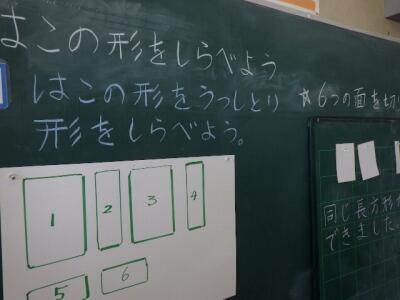 はこの形をしらべよう
はこの形をうつしとり
形をしらべよう。
☆6つの面を切り
同じ長方形が
できました。
1 2 3 4
5 6